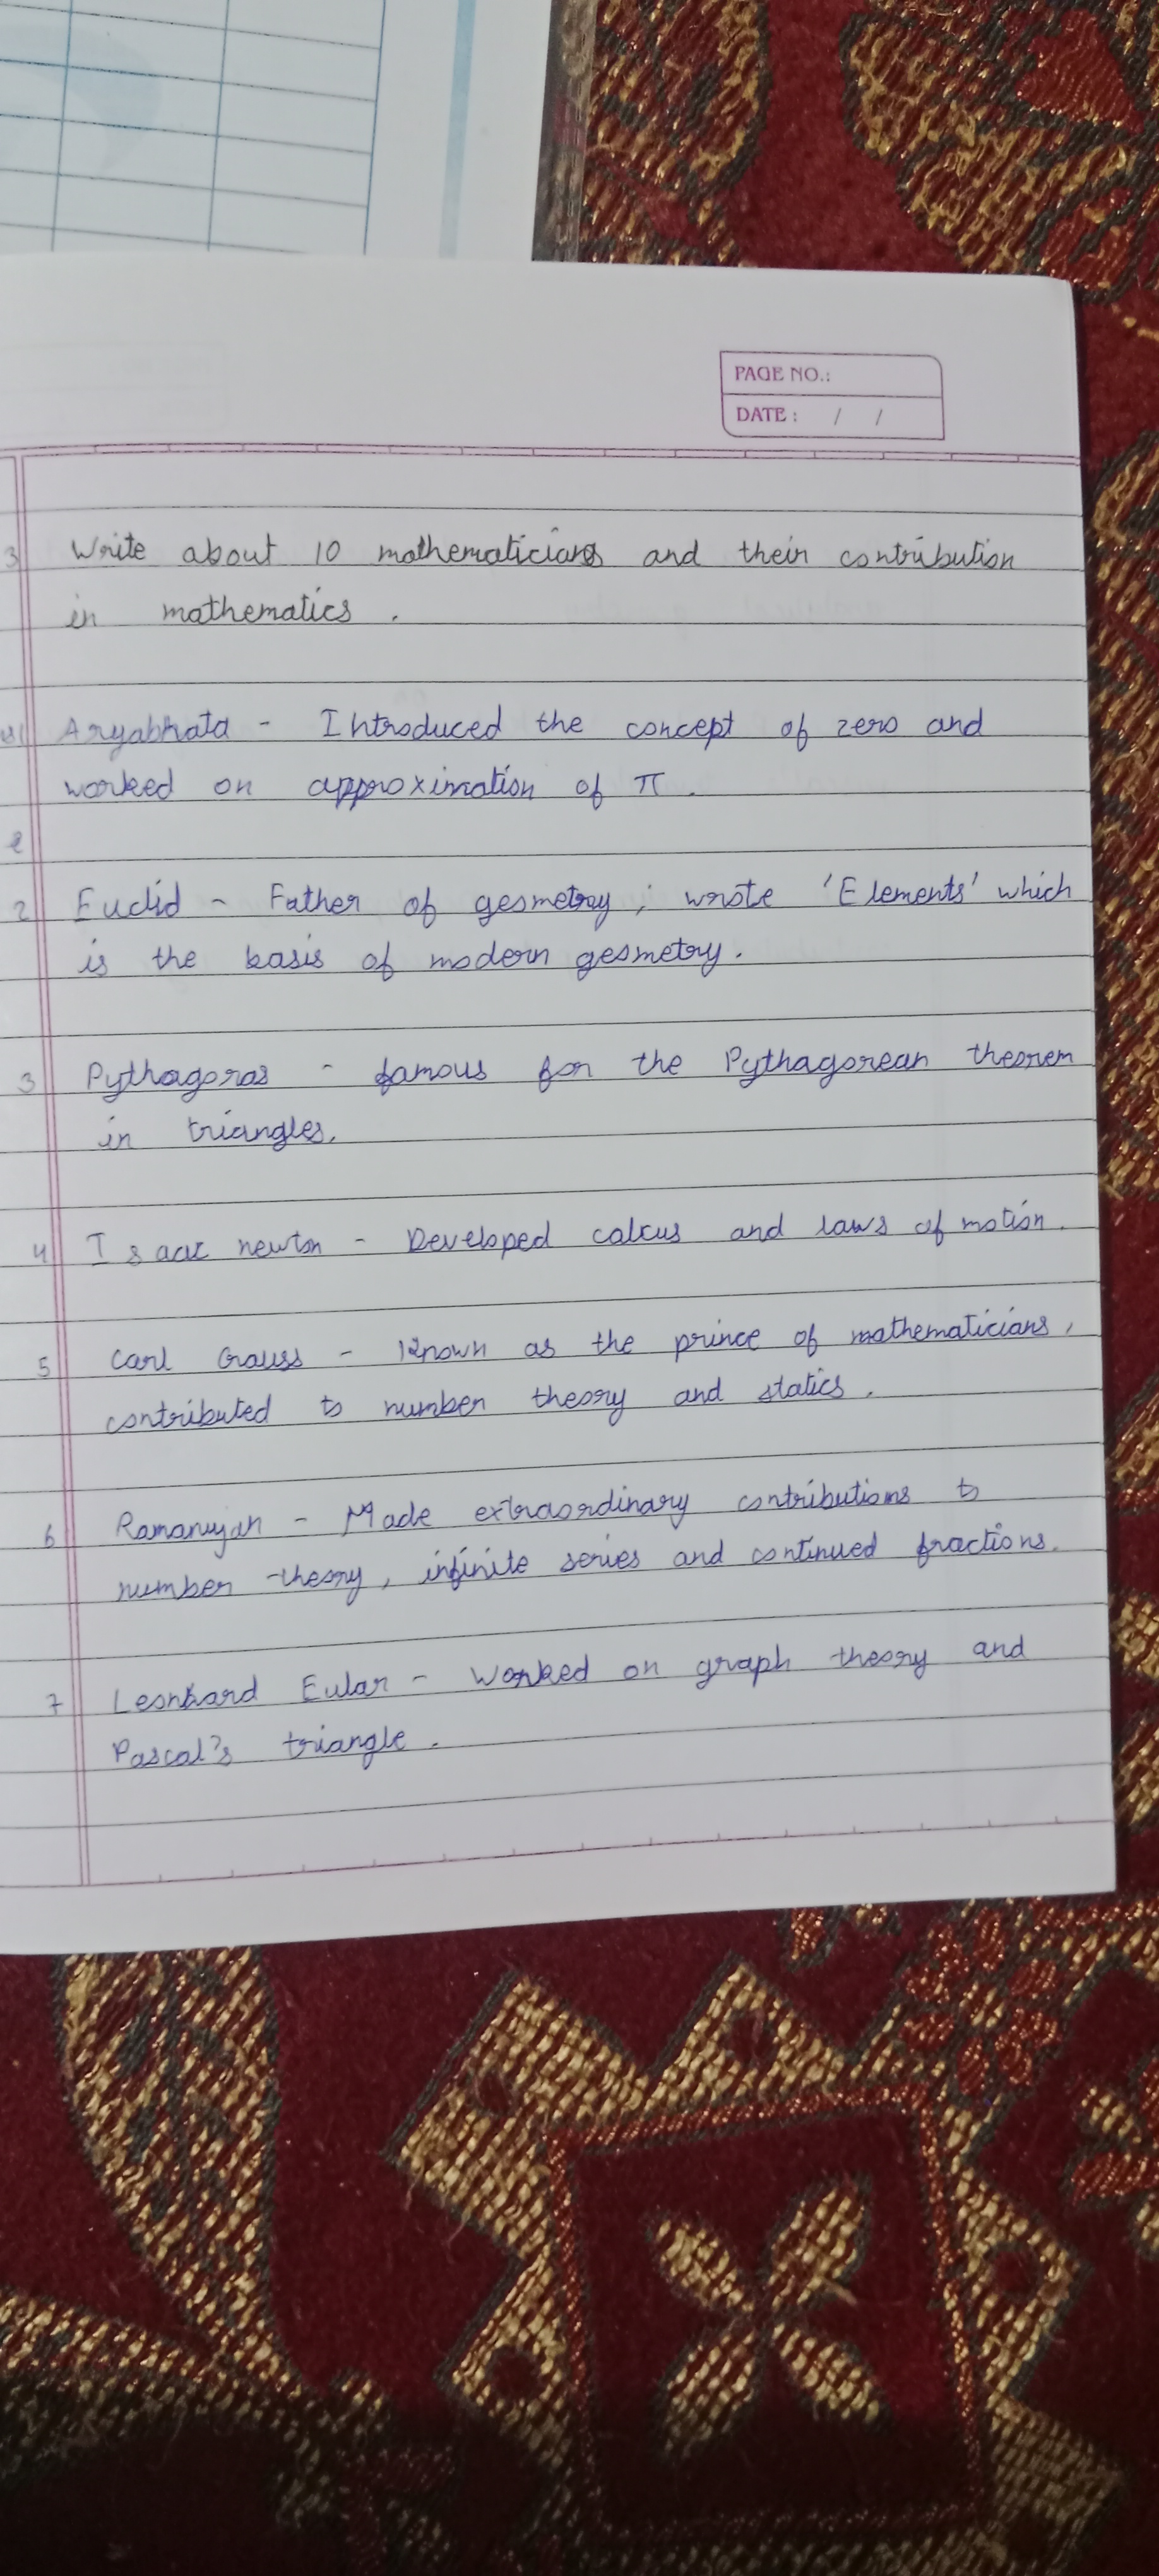 PAGE NO.:
DATE : / /
3 Write about 10 mathematicians and their contribution
in mathematics .
Aryabhata - Introduced the concept of zero and
worked on approximation of π .
2 Euclid - Father of geometry ; wrote 'Elements' which
is the basis of modern geometry .
3 Pythagoras - famous for the Pythagorean theorem
in triangles.
4 Isaac newton - Developed calcus and laws of motion .
5 Carl Gauss - Known as the prince of mathematicians ,
contributed to number theory and statics .
6 Ramanujan - Made extraordinary contributions to
number theory , infinite series and continued fractions .
7 Leonhard Eular - Worked on graph theory and
Pascal's triangle .